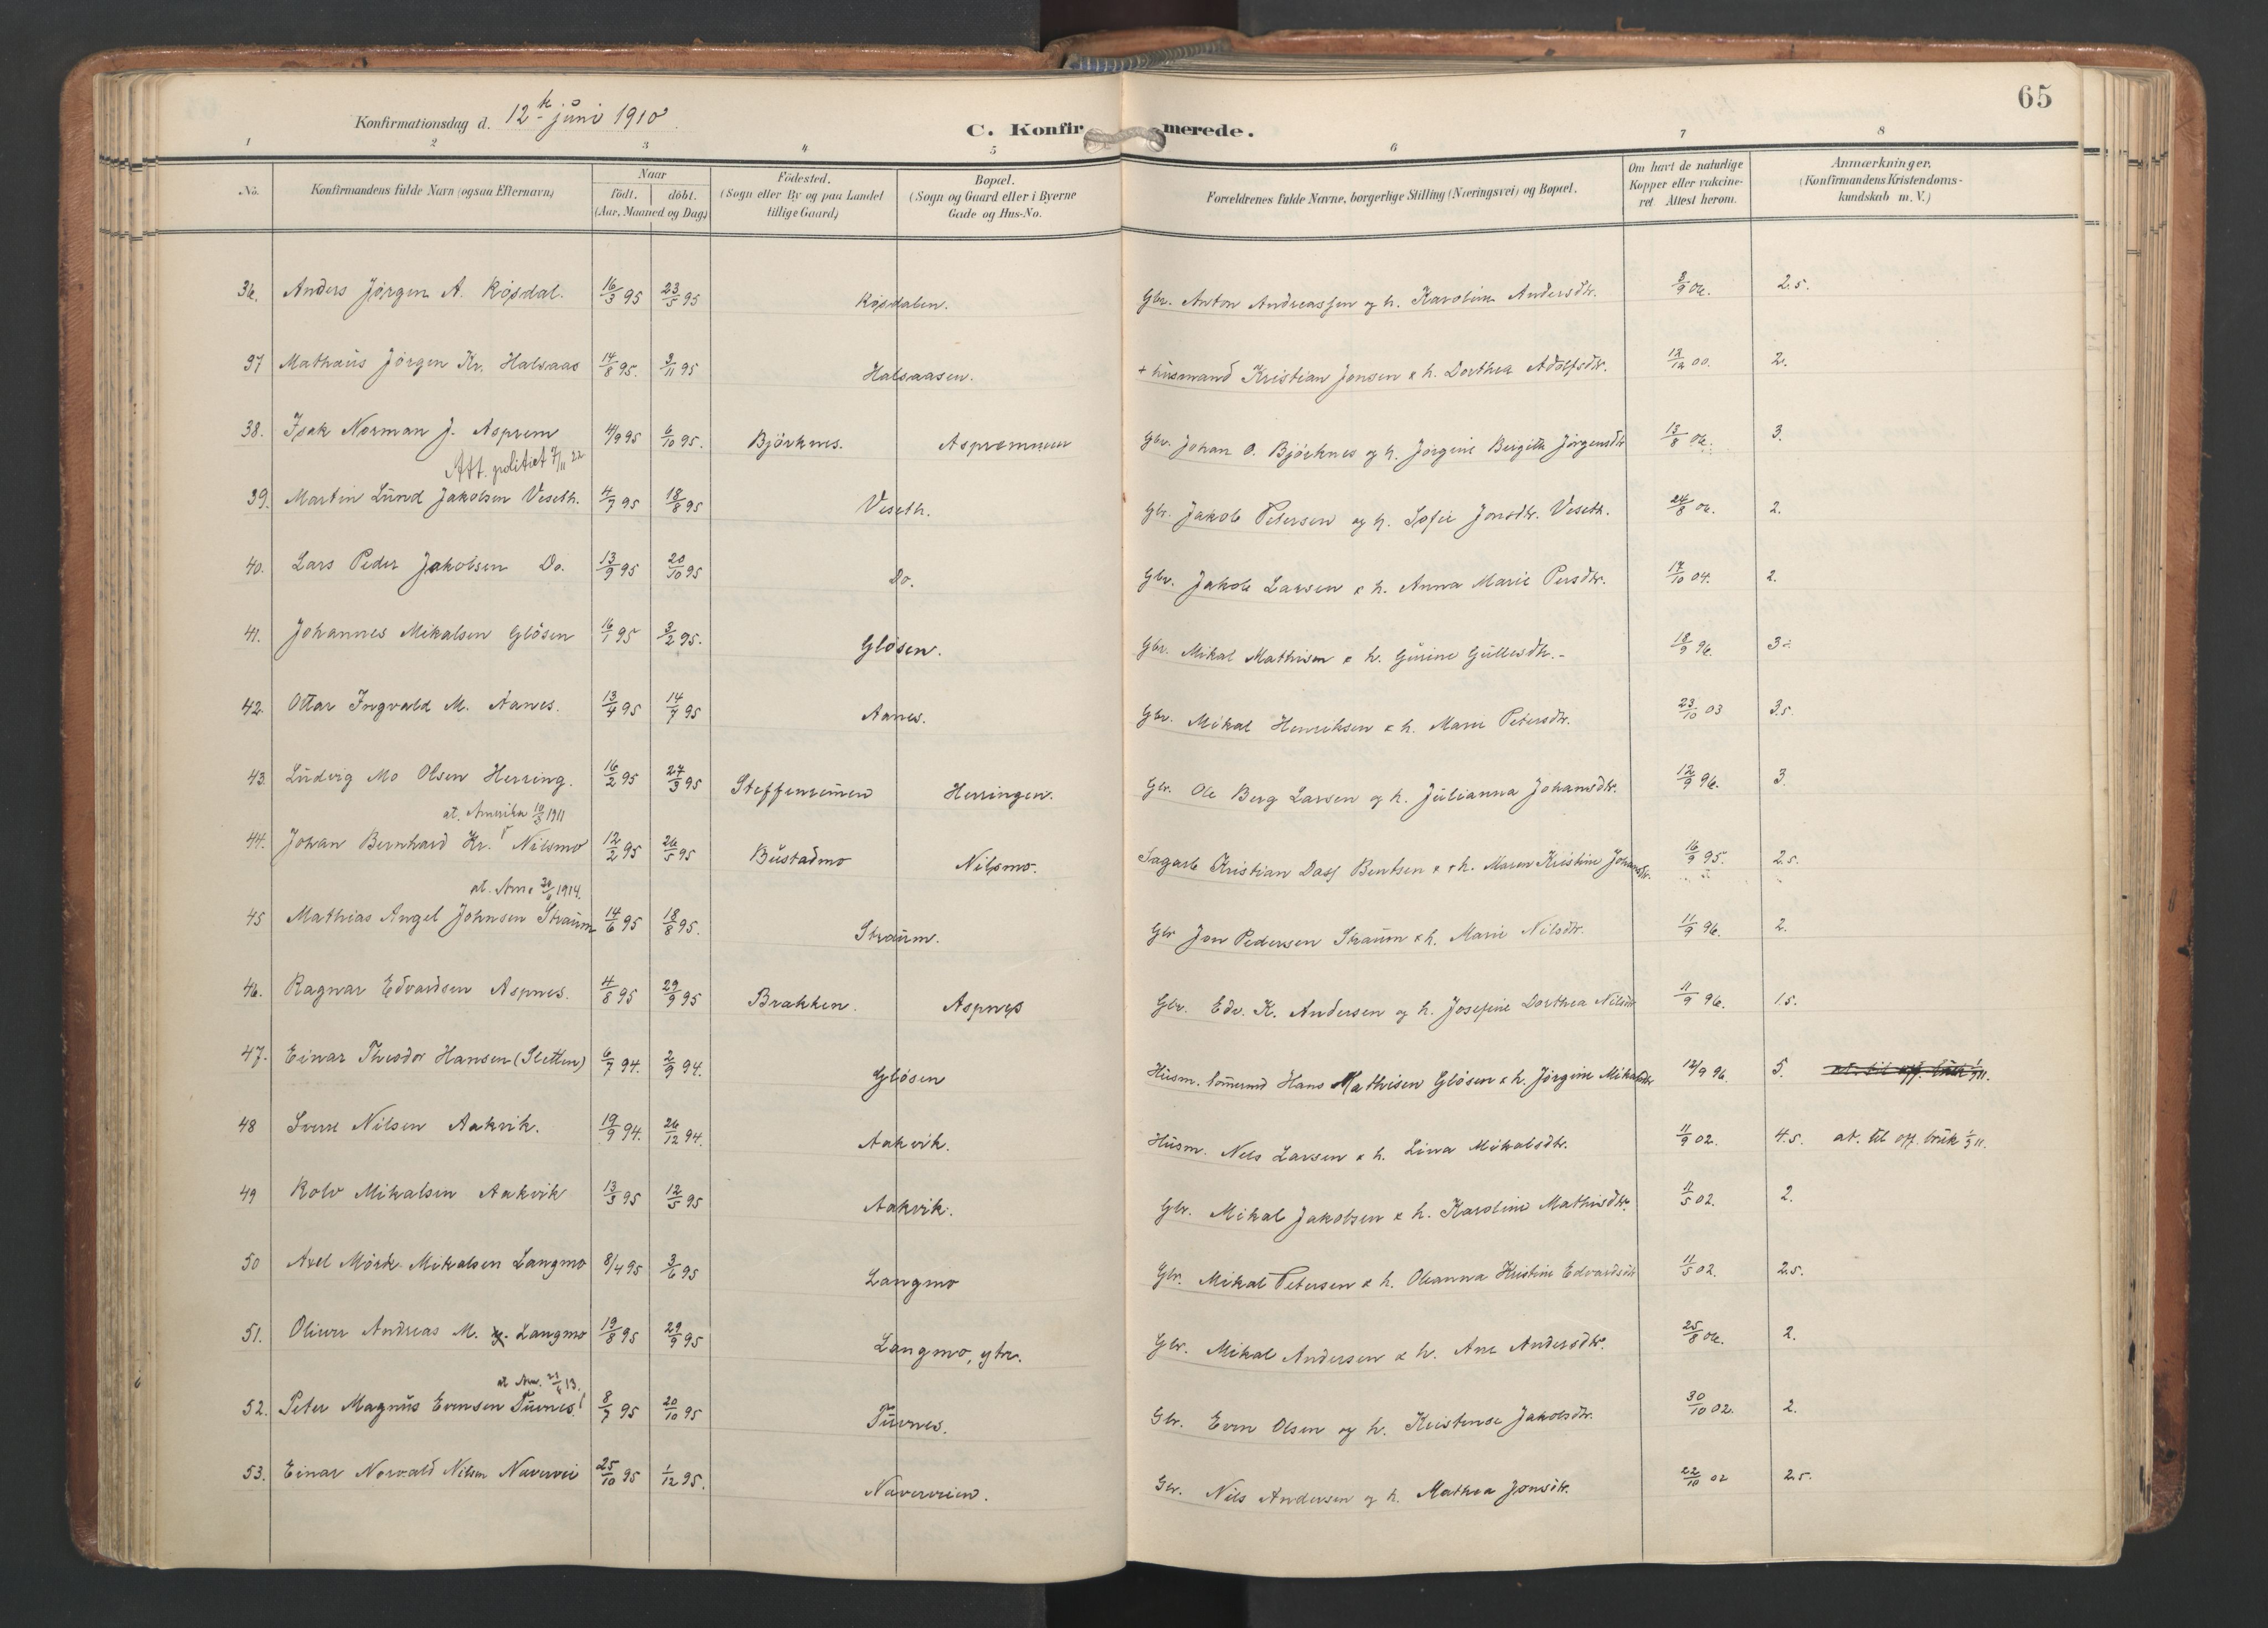 65
Konfirmationsdag d. 12te juni 1910.
C. Konfirmerede.
1 2 3 4 5 6 7 8
No. Konfirmandens fulde Navn (ogsaa Efternavn) Naar født. døbt. (Aar, Maaned og Dag) Födested. (Sogn eller By og paa Landet tillige Gaard) Bopæl. (Sogn og Gaard eller i Byerne Gade og Hus-No. Forældrenes fulde Navne, borgerlige Stilling (Næringsvei) og Bopæl. Om havt de naturlige Kopper eller vakcineret Attest herom. Anmærkninger. (Konfirmandens Kristendomskundskab m. V.)
36. Anders Jörgen A. Köjsdal. 16/3 95 23/5 95 Köjsdalen. Gbr. Anton Andreassen og h. Karoline Andersdtr. 3/9 06. 2.5.
37 Mathæus Jörgen Kr. Halsaas 14/8 95. 3/11 95 Halsaasen. + husmand Kristian Jonsen & h. Dorthea Adolfsdtr. 12/12 00. 2.
38. Isak Norman J. Asprem 4/9 95 6/10 95. Björknes. Aspremmen Gbr. Johan O. Björknes og h. Jörgine Birgitte Jörgensdtr 13/8 06. 3.
Att. politiet 7/11 22
39. Martin Lund Jakobsen Veseth. 4/7 95 18/8 95 Veseth. Gbr. Jakob Petersen og h. Sofie Jonsdtr. Veseth. 24/8 06. 2.
40. Lars Peder Jakobsen Do. 13/9 95 20/10 95 Do. Gbr. Jakob Larsen & h. Anna Marie Persdtr. 17/10 04. 2.
41. Johannes Mikalsen Glösen 16/1 95 3/2 95. Glösen. Gbr. Mikal Mathisen & h. Gurine Gullesdtr. - 18/9 96. 3
42. Ottar Ingvald M. Aanes. 13/4 95 14/7 95 Aanes. Gbr. Mikal Henriksen & h. Marie Petersdtr. 23/10 03 3.5.
43. Ludvig Mo Olsen Herring. 16/2 95 24/3 95 Steffensrennen Herringen. Gbr. Ole Berg Larsen og h. Julianna Johansdtr. 12/9 96. 3.
at. Amerika 10/3 1911
44. Johan Bernhard Kr. Nilsmo 12/2 95 26/5 95 Bustadmo Nilsmo. Sagarb Kristian Dass Bentsen & + h. Maren Kristine Johansdtr. 16/9 95. 2.5.
at. Am. 20/4 1914.
45 Mathias Angel Johnsen Straum 14/6 95 18/8 95. Straum. Gbr Jon Pedersen Straum & h. Marie Nilsdtr. 11/9 96. 2.
46. Ragnar Edvardsen Aspnes. 4/8 95 29/9 95 Brakken. Aspnes Gbr. Edv. K. Andersen og h. Josefine Dorthea Nilsdtr 11/9 96. 1.5.
47. Einar Theodor Hansen (Sletten) 6/7 94. 2/9 94. Glösen Husm. tömmermd Hans Mathisen Glösen & h. Jörgine Mikalsdtr 12/9 96. 5. at. til off. bruk 1/3 11.
48 Sverre Nilsen Aakvik. 19/9 94. 26/12 94. Aakvik. Husm. Nils Larsen & h. Lina Mikalsdtr. 11/9 02. 4.5. at. til off. bruk 1/3 11.
49 Rolv Mikalsen Aakvik 13/3 95 12/5 95 Aakvik. Gbr. Mikal Jakobsen & h. Karoline Mathisdtr. 11/5 02. 2.
50 Axel Mörk Mikalsen Langmo 8/4 95 3/6 95 Langmo Gbr. Mikal Petersen & h. Oleanna Kristine Edvardsdtr 11/5 02. 2.5.
51. Oliver Andreas M. y. Langmo 19/8 95 29/9 95 Langmo, ytre. Gbr. Mikal Andersen & h. Ane Andersdtr. 25/8 06. 2.
at Am. 23/4 13.
52. Peter Magnus Evensen Turnes. 8/7 95 20/10 95 Turnes. Gbr. Even Olsen og h. Kristense Jakobsdtr. 30/10 02. 2.
53. Einar Norvald Nilsen Navervei 25/10 95 1/12 95. Naverveien. Gbr. Nils Andersen og h. Mathea Jonsdtr. 22/10 02 2.5.